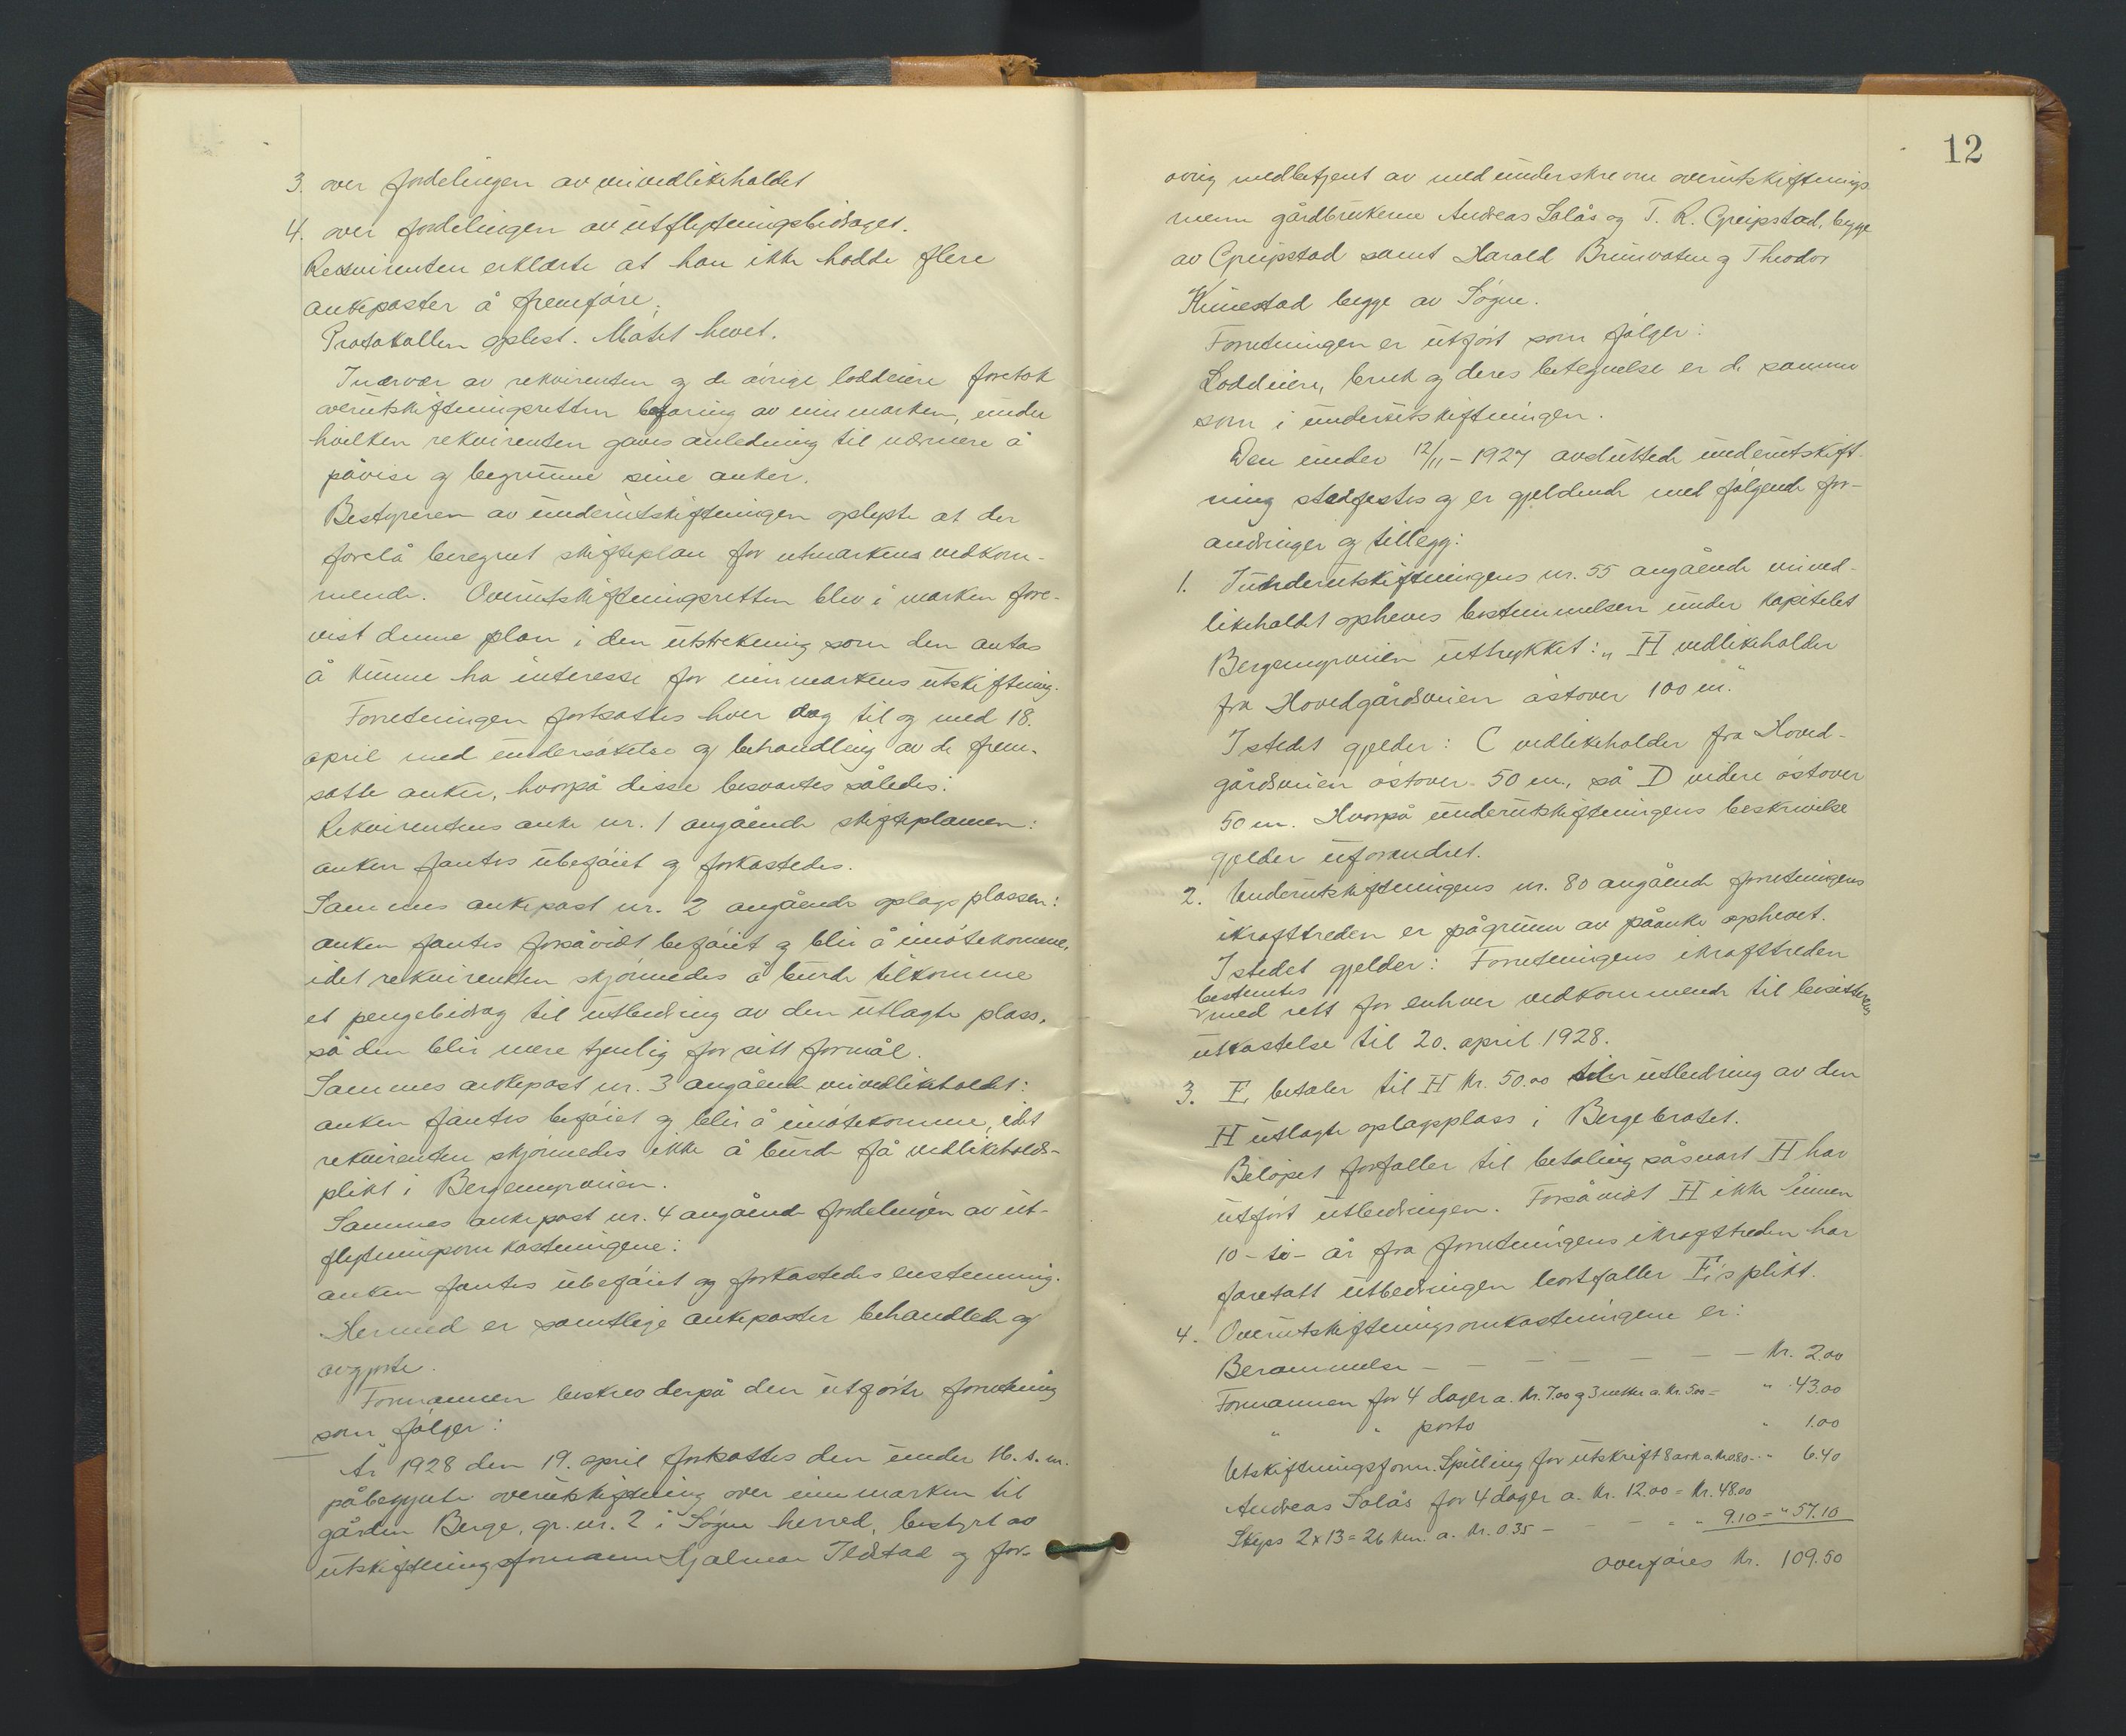 3. over fordelingen av veivedlikeholdet
4. over fordelingen av utflytningsbidraget.
Rekvirenten erklærte at han ikke hadde flere
ankeposter å fremføre.
Protokollen oplest. Møtet hevet.
I nærvær av rekvirenten og de øvrige loddeiere foretok
overutskiftningsretten befaring av innmarken, under
hvilken rekvirenten gaves anledning til nærmere å
påvise og begrunne sine anker.
Bestyreren av underutskiftningen oplyste at der
forelå beregnet skifteplan for utmarkens vedkom-
mende. Overutskiftningsretten blev i marken fore-
vist denne plan i den utstrekning som den antas
å kunne ha interesse for innmarkens utskiftning.
Forretningen fortsattes hver dag til og med 18.
april med undersøkelse og behandling av de frem-
satte anker, hvorpå disse besvartes således:
Rekvirentens anke nr. 1 angående skifteplanen:
anken fantes ubeføiet og forkastedes.
Sammes ankepost nr. 2 angående oplagsplassen:
anken fantes forsåvidt beføiet og blir å imøtekomme,
idet rekvirenten skjønnedes å burde tilkomme
et pengebidrag til utbedring av den utlagte plass,
så den blir mere tjenlig for sitt formål.
Sammes ankepost nr. 3 angående veivedlikeholdet:
anken fantes beføiet og blir å imøtekomme, idet
rekvirenten skjønnedes ikke å burde få vedlikeholds-
plikt i Bergemyrveien.
Sammes ankepost nr. 4 angående fordelingen av ut-
flytningsomkostningene:
anken fantes ubeføiet og forkastedes enstemmig.
Hermed er samtlige ankeposter behandlede og
avgjorte.
Formannen beskrev derpå den utførte forretning
som følger:
År 1928 den 19. april fortsattes den under 16. s. m.
påbegynte overutskiftning over innmarken til
gården Berge, gr. nr. 2 i Søgne herred, bestyrt av
utskiftningsformann Hjalmar Ildstad og for-
12
øvrig medbetjent av medunderskrevne overutskiftnings-
menn gårdbrukerne Andreas Salås og T. R. Greipstad, begge
av Greipstad samt Harald Brunvatne og Theodor
Kunestad begge av Søgne.
Forretningen er utført som følger:
Loddeiere, bruk og deres betegnelse er de samme
som i underutskiftningen.
Den under 12/11 - 1927 avsluttede underutskift-
ning stadfestes og er gjeldende med følgende for-
andringer og tillegg:
1. I underutskiftningens nr. 55 angående veived-
likeholdet opheves bestemmelsen under kapitelet
Bergemyrveien uttrykket: „ H vedlikeholder
fra Hovedgårdsveien østover 100 m."
Istedet gjelder: C vedlikeholder fra Hoved-
gårdsveien østover 50 m., så D videre østover
50 m. Hvorpå underutskiftningens beskrivelse
gjelder uforandret.
2. Underutskiftningens nr. 80 angående forretningens
ikrafttreden er pågrunn av påanke ophevet.
Istedet gjelder: Forretningens ikrafttreden
bestemtes
med rett for enhver vedkommende til besittelses
utkastelse til 20. april 1928.
3. E, betaler til H kr. 50.00 til utbedring av den
H utlagte oplagsplass i Bergebrotet.
Beløpet forfaller til betaling såsnart H har
utført utbedringen. Forsåvidt H ikke innen
10 - ti - år fra forretningens ikrafttreden har
foretatt utbedringen bortfaller E,s plikt.
4. Overutskiftningsomkostningene er:
Berammelse - - - - - - - kr. 2.00
Formannen for 4 dager a. kr. 7.00 og 3 netter a. kr. 5.00 = " 43.00
" " porto " 1.00
Utskiftningsform. Spilling for utskrift 8 ark a. kr. 0.80 - - " 6.40
Andreas Salås for 4 dager a. kr. 12.00 = kr. 48.00
Skyss 2 x 13 = 26 km. a. kr. 0.35 - - - - " 9.10 = " 57.10
Overføres kr. 109.50